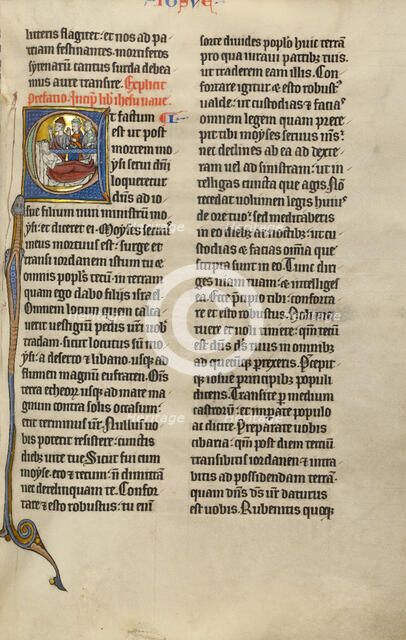 IOSUE
litteris flagitet: et nos ad pa
triam festinantes. mortiferos
syrenarum cantus surda debea
mus aure transire. Explicit
prefatio. Incip lib ihesu naue.
Et factum
est ut post
mortem mo
ysi serui dni
loqueretur
dns ad io
sue filium nun ministrum mo
ysi: et diceret ei. Moyses seruus
meus mortuus est: surge et
transi iordanem istum tu et
omnis popls tecum in terram
quam ego dabo filiis israel.
Omnem locum quem calca
uerit uestigium pedis uri uob
tradam: sicut locutus sum mo
ysi: a deserto et libano usq; ad
flumen magnum eufraten. Ois
terra etheorum usq; ad mare ma
gnum contra solis occasum
erit terminus ur. Nullus uo
bis poterit resistere: cunctis
dieb; uite tue. Sicut fui cum
moyse: ero et tecum: n dimittam
nec derelinquam te. Confor
tare et esto robustus: tu enim
sorte diuides poplo huic terram
pro qua iuraui patrib; tuis.
ut traderem eam illis. Confor
tare igitur et esto robustus
ualde: ut custodias et facias
omnem legem quam prece
pit tibi moyses seruus meus.
nec declines ab ea ad dexte
ram uel ad sinistram: ut in
telligas cuncta que agis. Non
recedat uolumen legis huius
de ore tuo: sed meditaberis
in eo dieb; et noctib;: ut cu
stodias et facias omnia que
scripta sunt in eo. Tunc diri
ges uiam tuam: et intelliges
ea. Ecce precipio tibi: conforta
re et esto robustus. Noli me
tuere et noli timere: quoniam tecum
est dns ds tuus in omnib;
ad quecumq; perrexeris. Precepit
q; iosue principib; populi
dicens. Transite per medium
castrorum: et imperate populo
ac dicite. Preparate uobis
cibaria: quoniam post diem tercium
transibitis iordanem: et intra
bitis ad possidendam terram.
quam dns ds ur daturus
est uobis. Rubenitis quoq;